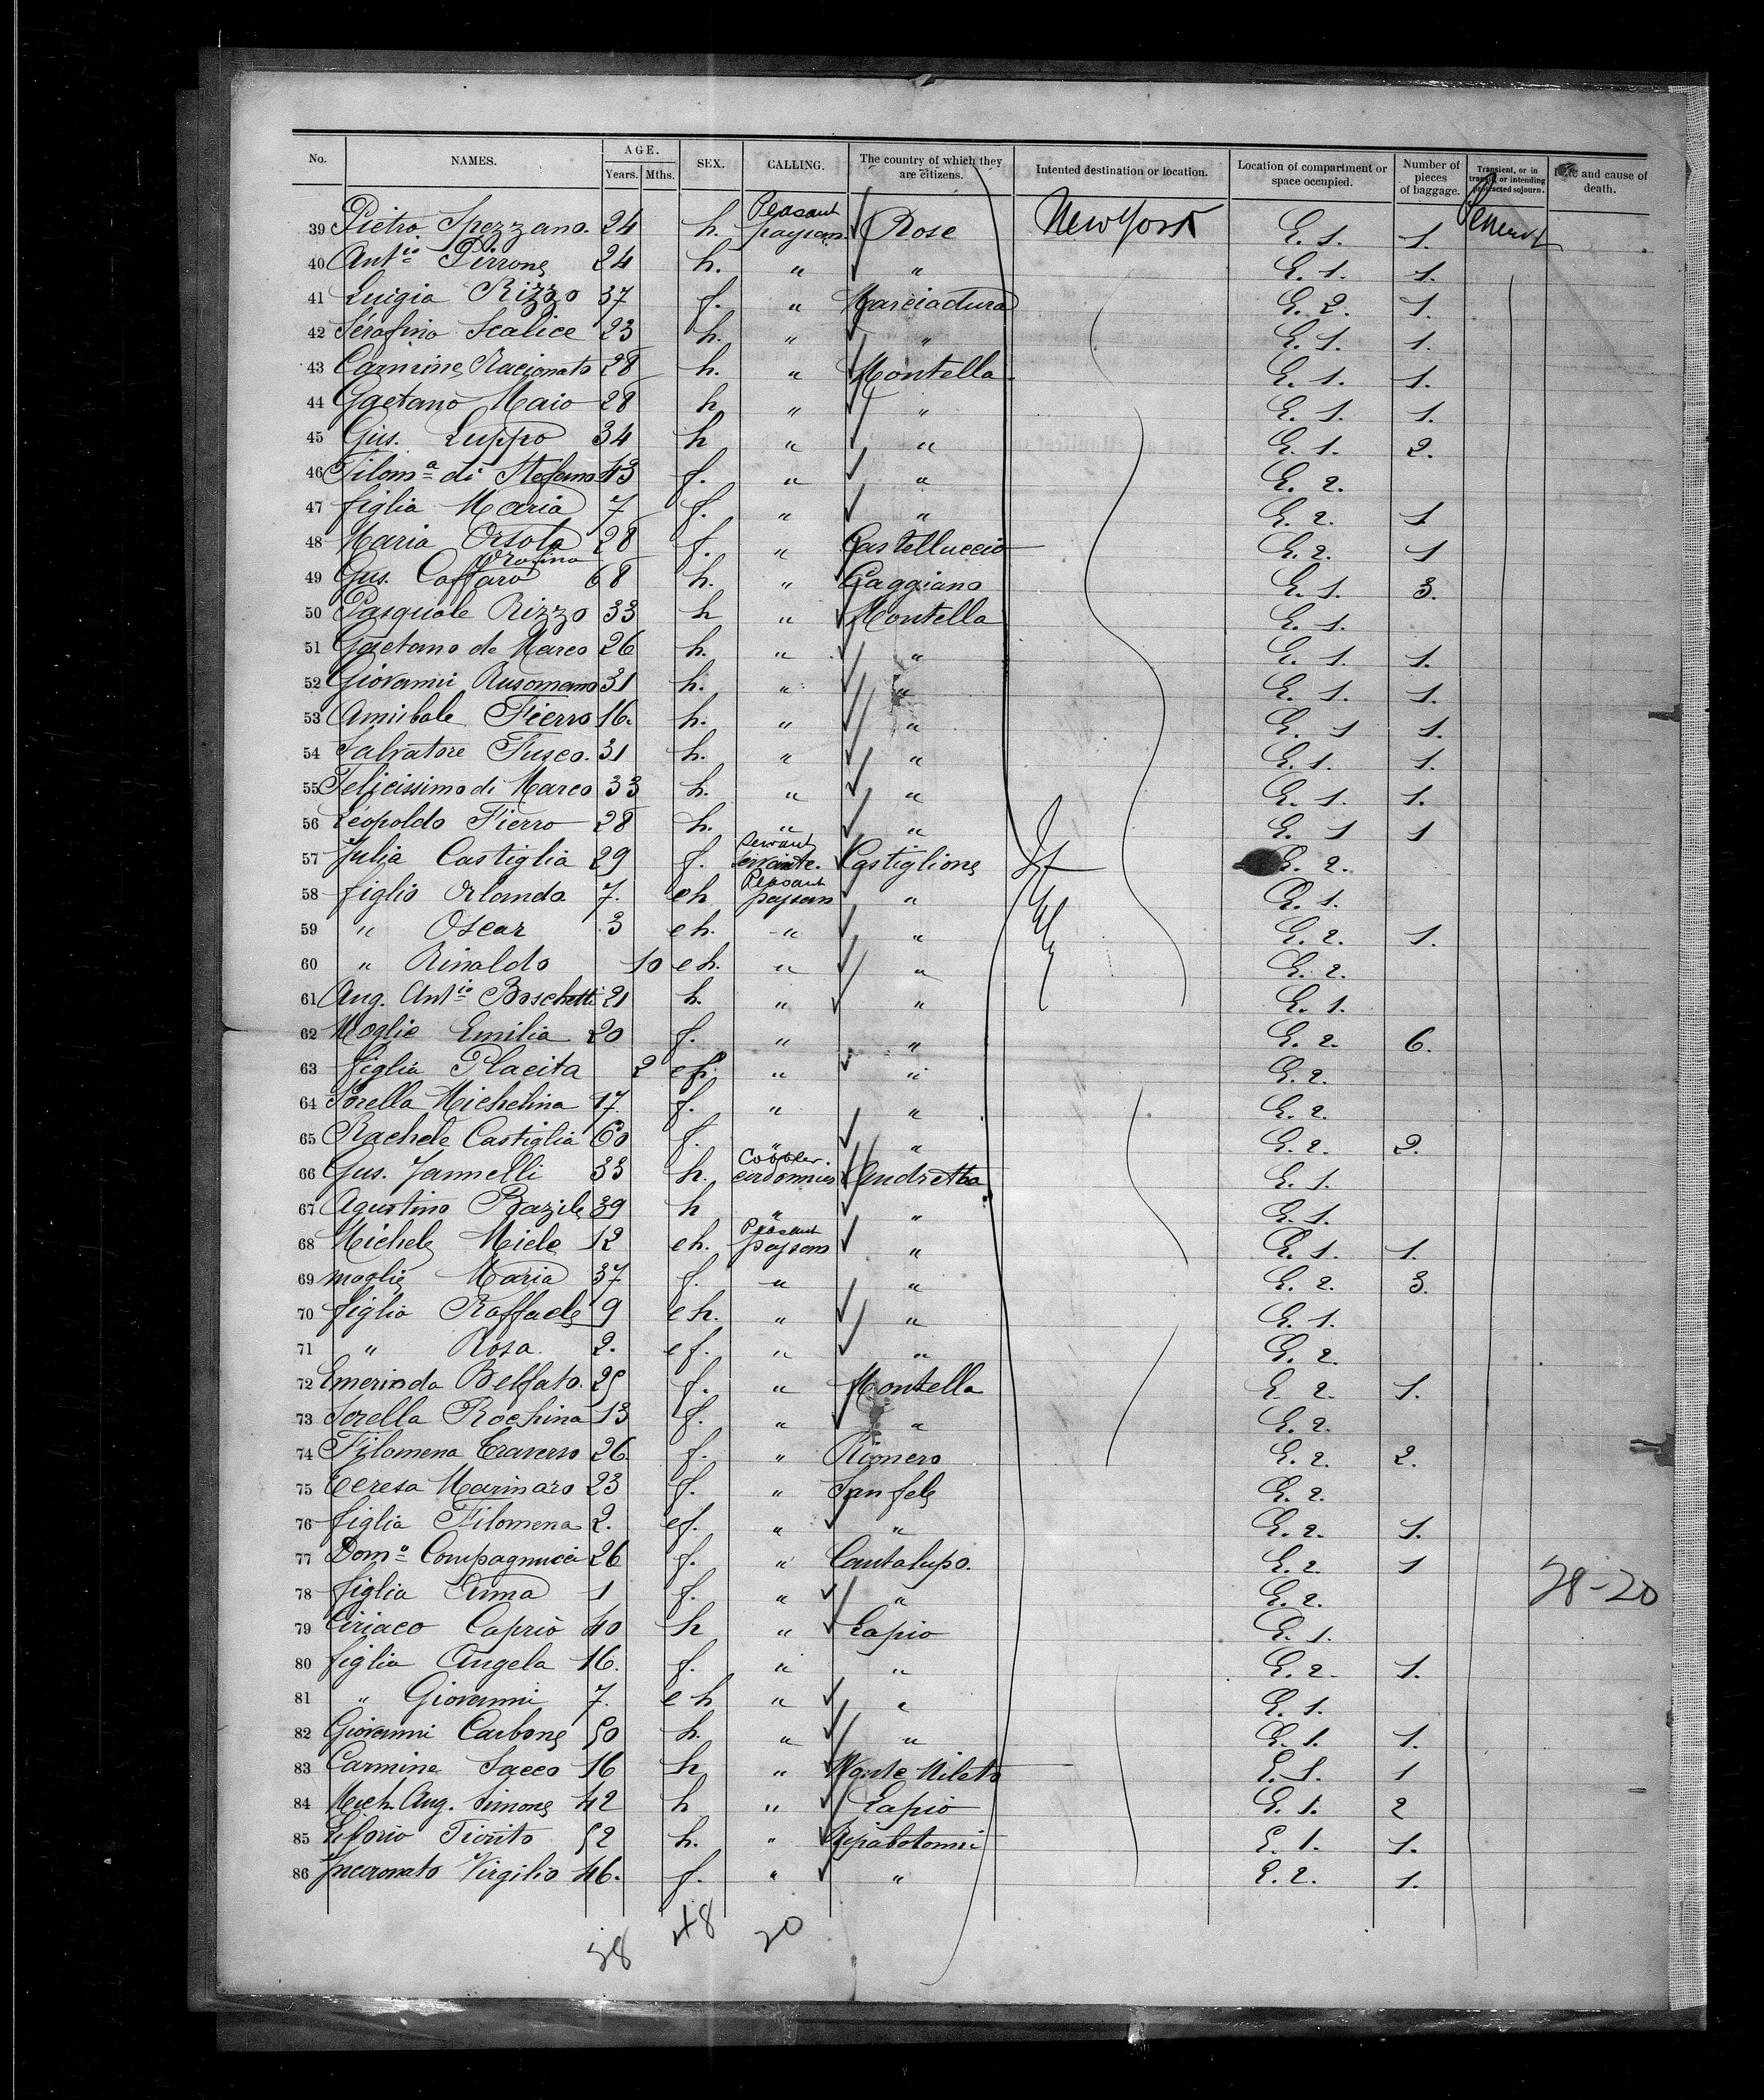 No. NAMES. AGE. Years. Mths. SEX. CALLING. The country of which they are citizens. Intented destination or location. Location of compartment or space occupied. Number of pieces of baggage. Transient, or in transit, or intending protracted sojourn. and cause of death.
39 Pietro Spezzano. 24 h. Peasant paysan Rose New York E. 1. 1.
40 Ant.io Pirrone 24 h. " " E. 1. 1.
41 Luigia Rizzo 37 f. " Marciadura E. 2. 1.
42 Sérafino Scalice 23 h. " " E. 1. 1.
43 Carmine Racionato 28 h. " Montella E. 1. 1.
44 Gaetano Maio 28 h " " E. 1. 1.
45 Gius. Luppo 34 h " " E. 1. 2.
46 Filom.a di Stefano 43 f. " " E. 2.
47 figlia Maria 7 f. " " E. 2. 1
48 Maria Orsola 28 f. " Castelluccio E. 2. 1
49 Gus. Caffaro 68 h. " Caggiano E. 1. 3.
50 Pasquale Rizzo 33 h " Montella E. 1.
51 Gaetano de Marco 26 h. " " E. 1. 1.
52 Giovanni Rusomano 31 h. " " E. 1. 1.
53 Annibale Fierro 16. h. " " E. 1 1.
54 Salvatore Fusco. 31 h. " " E. 1. 1.
55 Felicissimo di Marco 33 h. " " E. 1. 1.
56 Léopoldo Fierro 28 h. " " E. 1 1
57 Julia Castiglia 29 f. Servant servante. Castiglione E. 2.
58 figlio Orlando 7. eh Peasant paysan " E. 1.
59 " Oscar 3 eh. " " E. 2. 1.
60 " Rinaldo 10 eh. " " E. 2.
61 Aug. Ant.io Boschetti 21 h. " " E. 1.
62 Moglie Emilia 20 f. " " E. 2. 6.
63 figlia Placita 2 ef. " " E. 2.
64 Sorella Michelina 17. f. " " E. 2.
65 Rachele Castiglia 60 f. " " E. 2. 2.
66 Gus. Jannelli 33 h. Cobbler. cordonnier Andretta E. 1.
67 Agustino Bazile 39 h " " E. 1.
68 Michele Miele 12 eh. Peasant paysan " E. 1. 1.
69 moglie Maria 37 f. " " E. 2. 3.
70 figlio Raffaele 9 eh. " " E. 1.
71 " Rosa. 2. ef. " " E. 2.
72 Emerinda Belfato. 25 f. " Montella E. 2. 1.
73 Sorella Rochina 13 f. " " E. 2.
74 Filomena Traverso 26 f. " Rionero E. 2. 2.
75 Teresa Marinaro 23 f. " San fele E. 2.
76 figlia Filomena 2. ef. " " E. 2. 1.
77 Dom.a Compagnucci 26 f. " Cantalupo. E. 2. 1
78 figlia Anna 1 f. " " E. 2. 28-20
79 Ciriaco Caprio 40 h " Lapio E. 1.
80 figlia Angela 16. f. " " E. 2. 1.
81 " Giovanni 7. eh " " E. 1.
82 Giovanni Carbone 50 h. " " E. 1. 1.
83 Carmine Sacco 16 h " Monte Mileto E. 1. 1
84 Mich. Ang. Simone 42 h " Lapio E. 1. 2
85 Liborio Tirito 52 h. " Ripabotonni E. 1. 1.
86 Incoronato Virgilio 46. f. " " E. 2. 1.
28 48 20